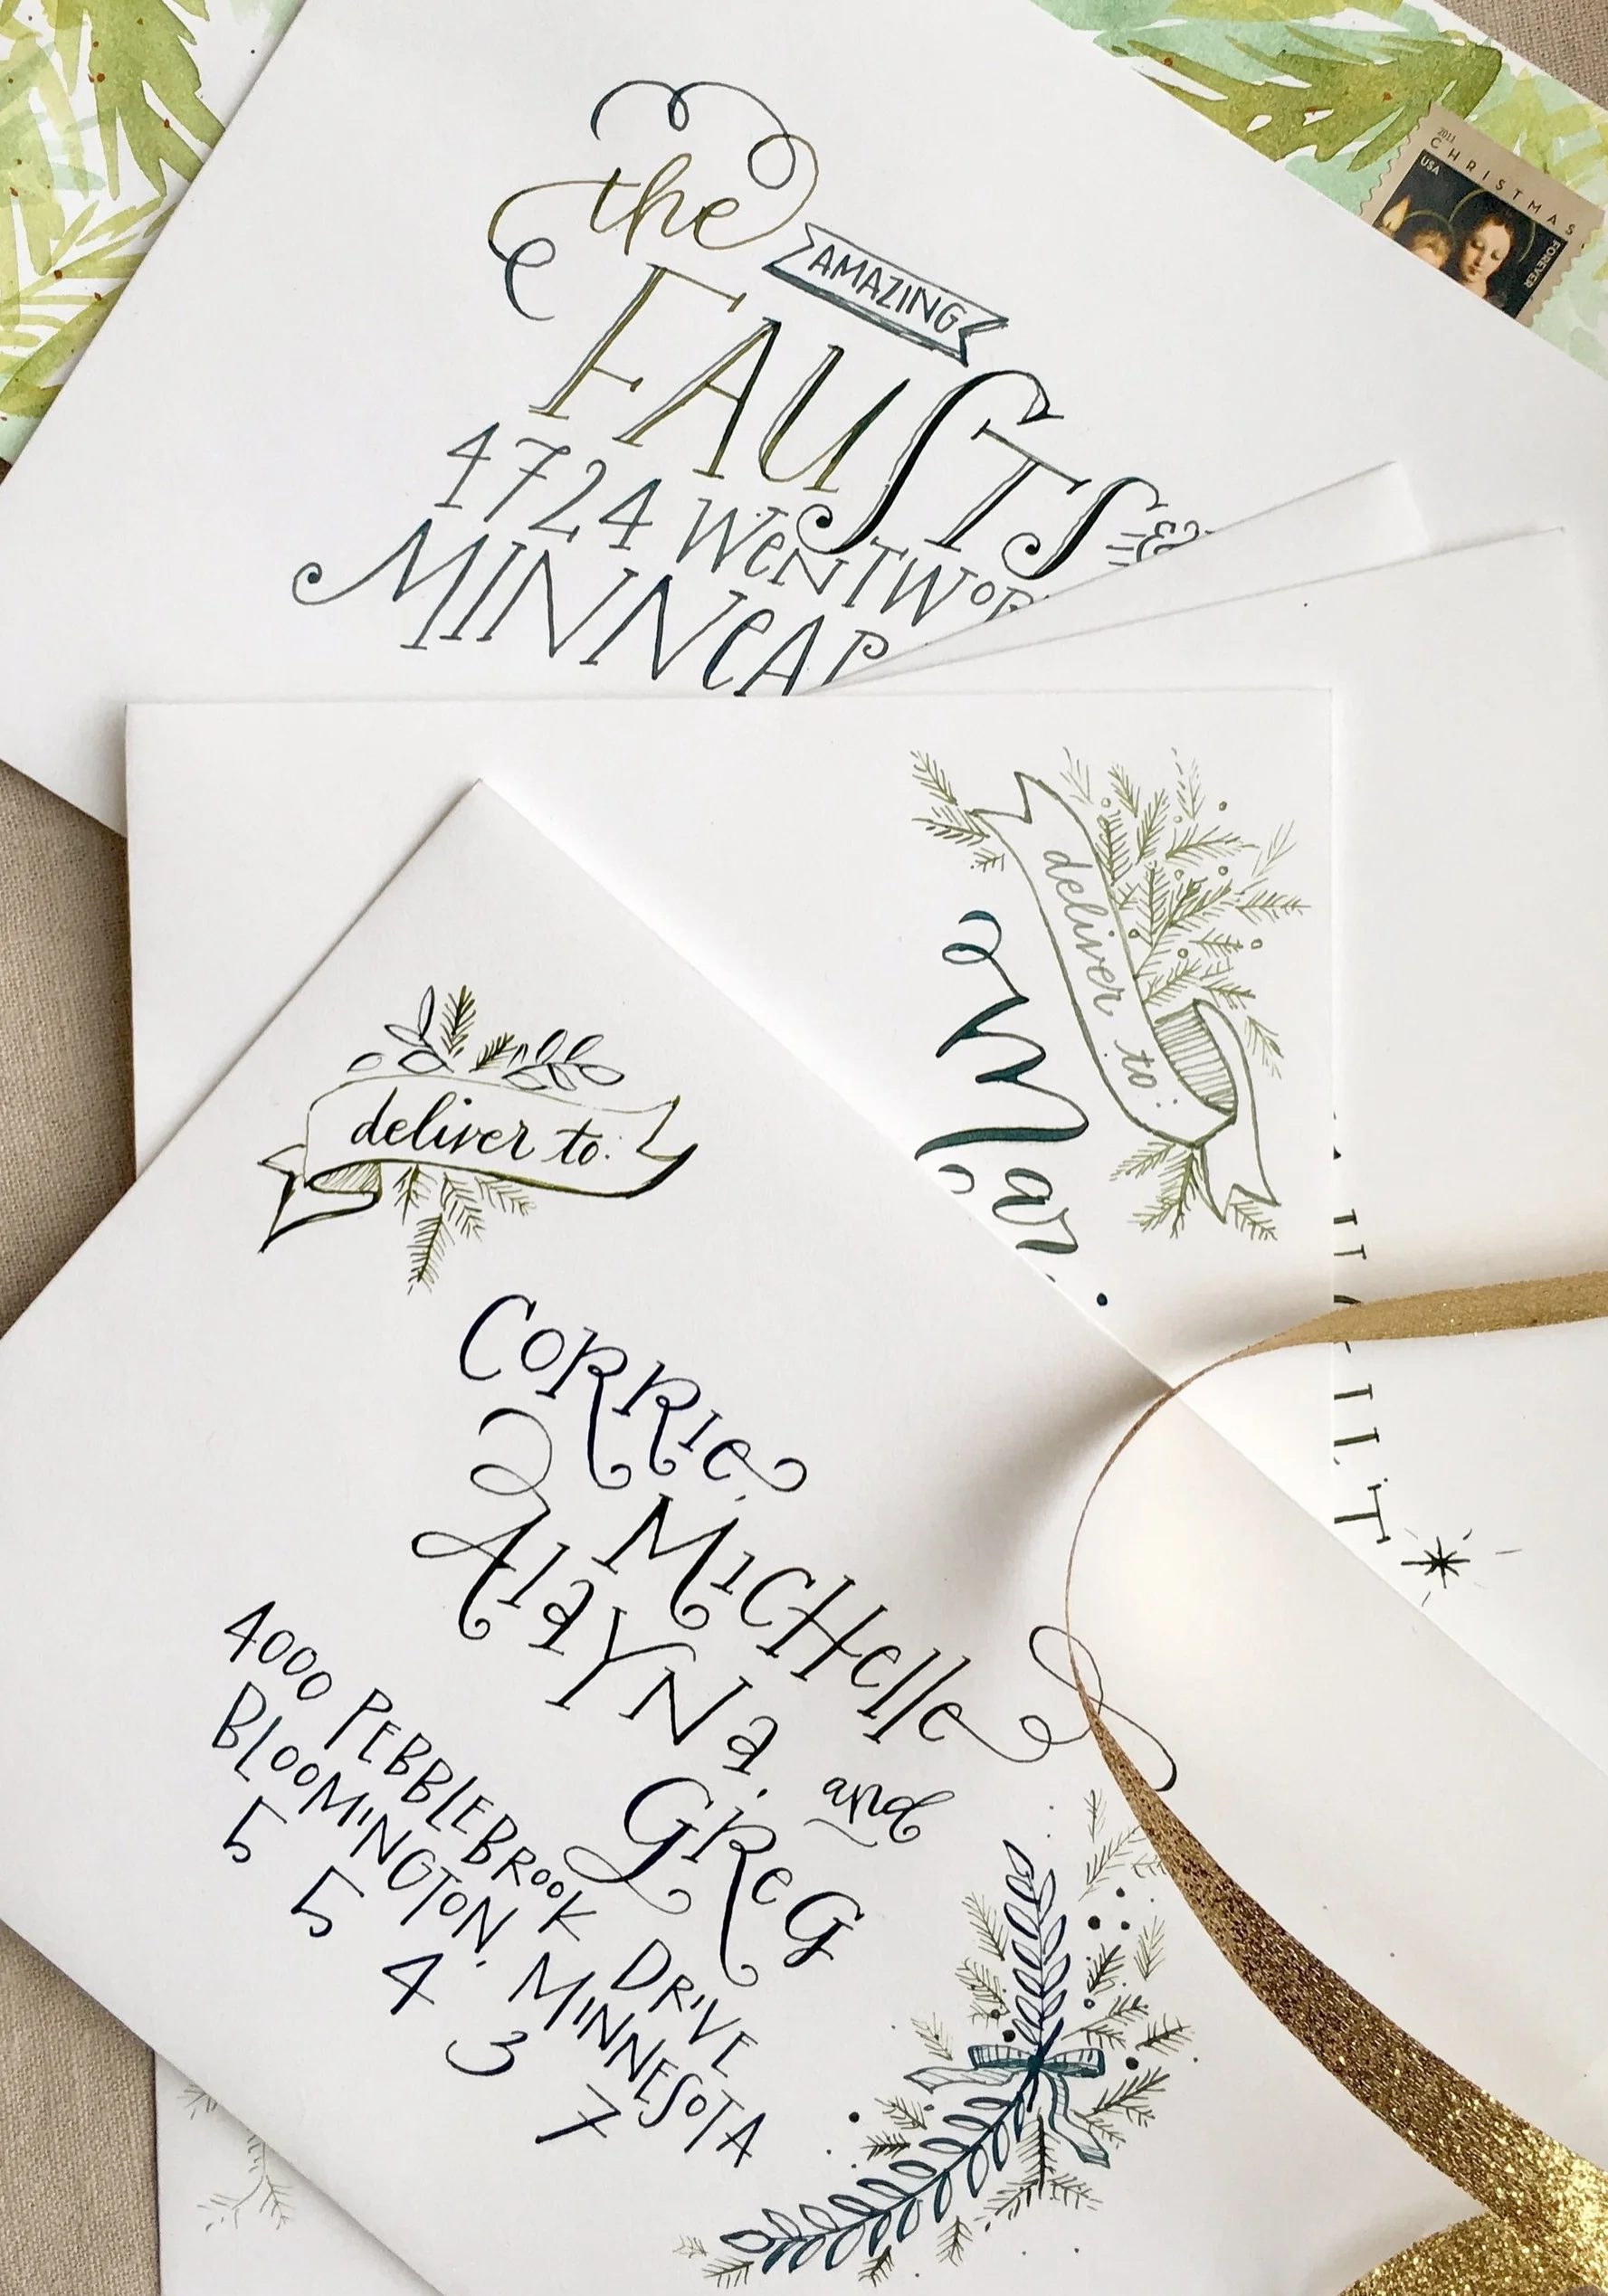 2011
CHRISTMAS
USA
FOREVER
the
AMAZING
FAUSTS
4724 WENTWOR
MINNEAP
deliver to:
Mar
deliver to:
CORRIE,
MICHelle
AlaYNa, and
GReG
4000 PEBBLEBROOK DRIVE
BLOOMINGTON, MINNESOTA
55437